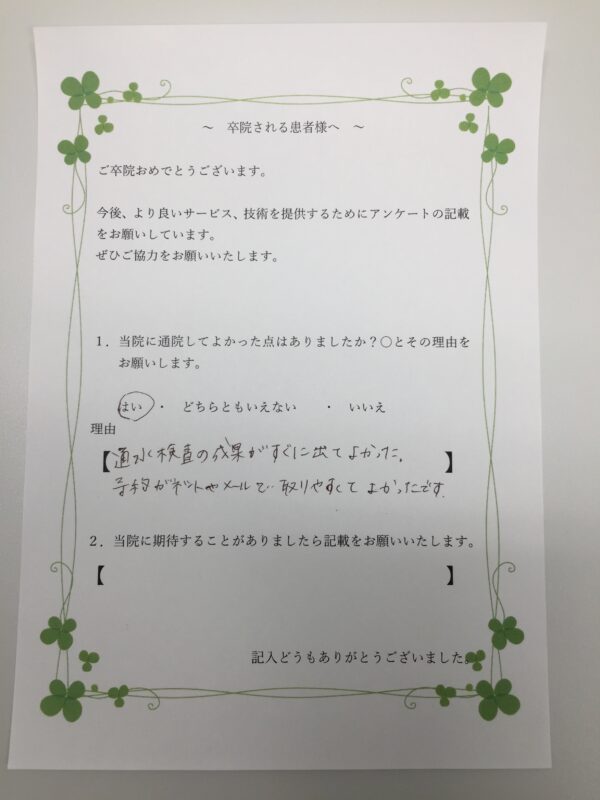 ～　卒院される患者様へ　～
ご卒院おめでとうございます。
今後、より良いサービス、技術を提供するためにアンケートの記載
をお願いしています。
ぜひご協力をお願いいたします。
１．当院に通院してよかった点はありましたか？○とその理由を
お願いします。
はい　・　どちらともいえない　・　いいえ
理由
【通水検査の成果がすぐに出てよかった。】
予約がネットやメールで取りやすくてよかったです。
２．当院に期待することがありましたら記載をお願いいたします。
【　】
記入どうもありがとうございました。